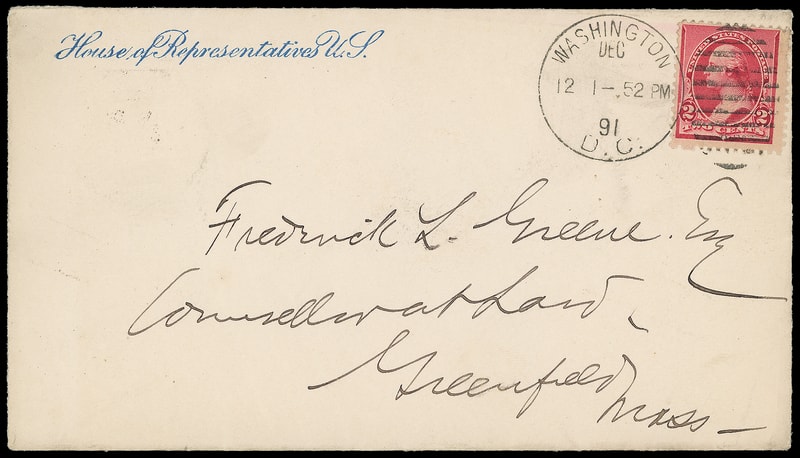 House of Representatives U.S.
WASHINGTON
DEC
12 1-.52 PM
91
D.C.
UNITED STATES POSTAGE
2 2
Frederick L. Greene. Esq
Counsellor at Law -
Greenfield
Mass -